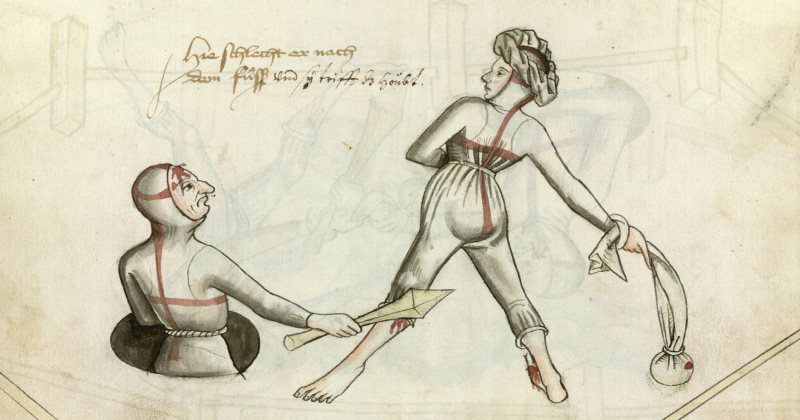 Hie schlecht er nach
dem fůss vnd sy trifft dz höubt.